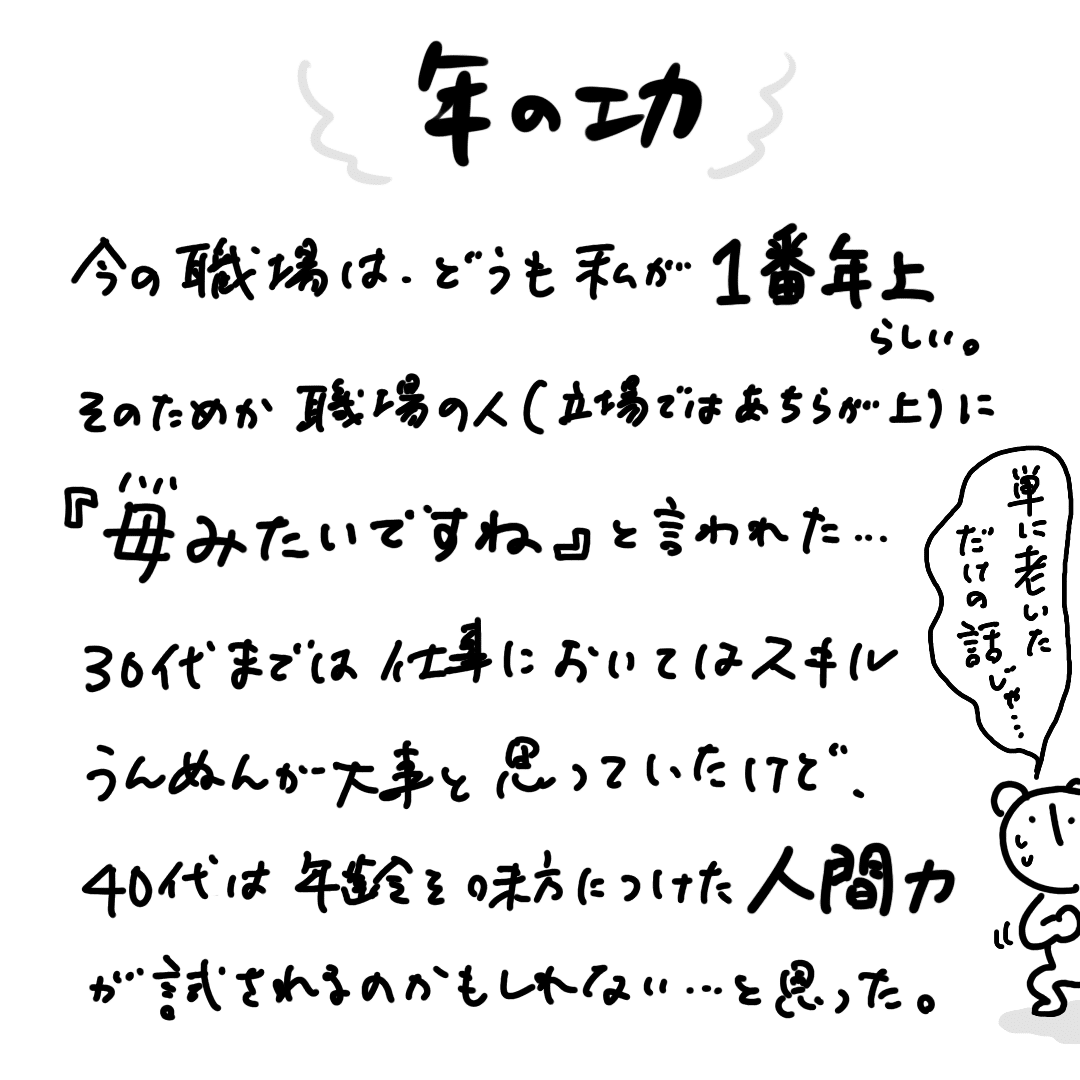 年の功
今の職場は、どうも私が1番年上
らしい。
そのためか職場の人(立場ではあちらが上)に
『母みたいですね』と言われた…
30代までは仕事においてはスキル
うんぬんが大事と思っていたけど、
40代は年齢を味方につけた人間力
が試されるのかもしれない…と思った。
単に老いた
だけの話じゃ…